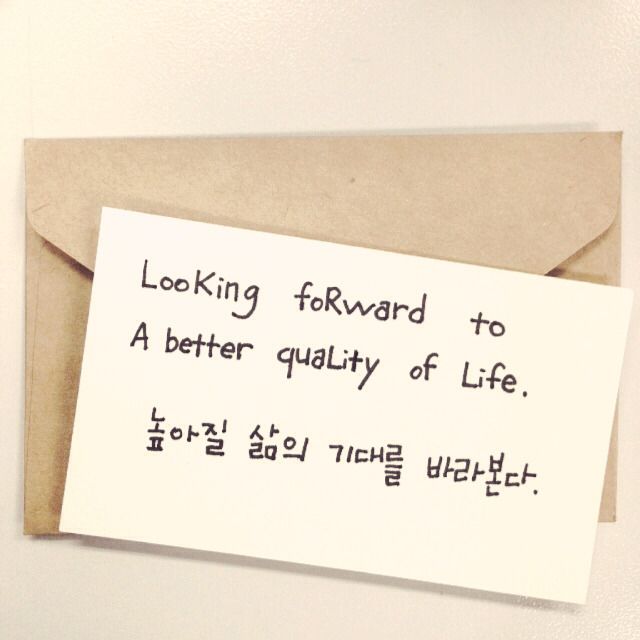 LooKing foRward to
A better quaLity of Life.
높아질 삶의 기대를 바라본다.